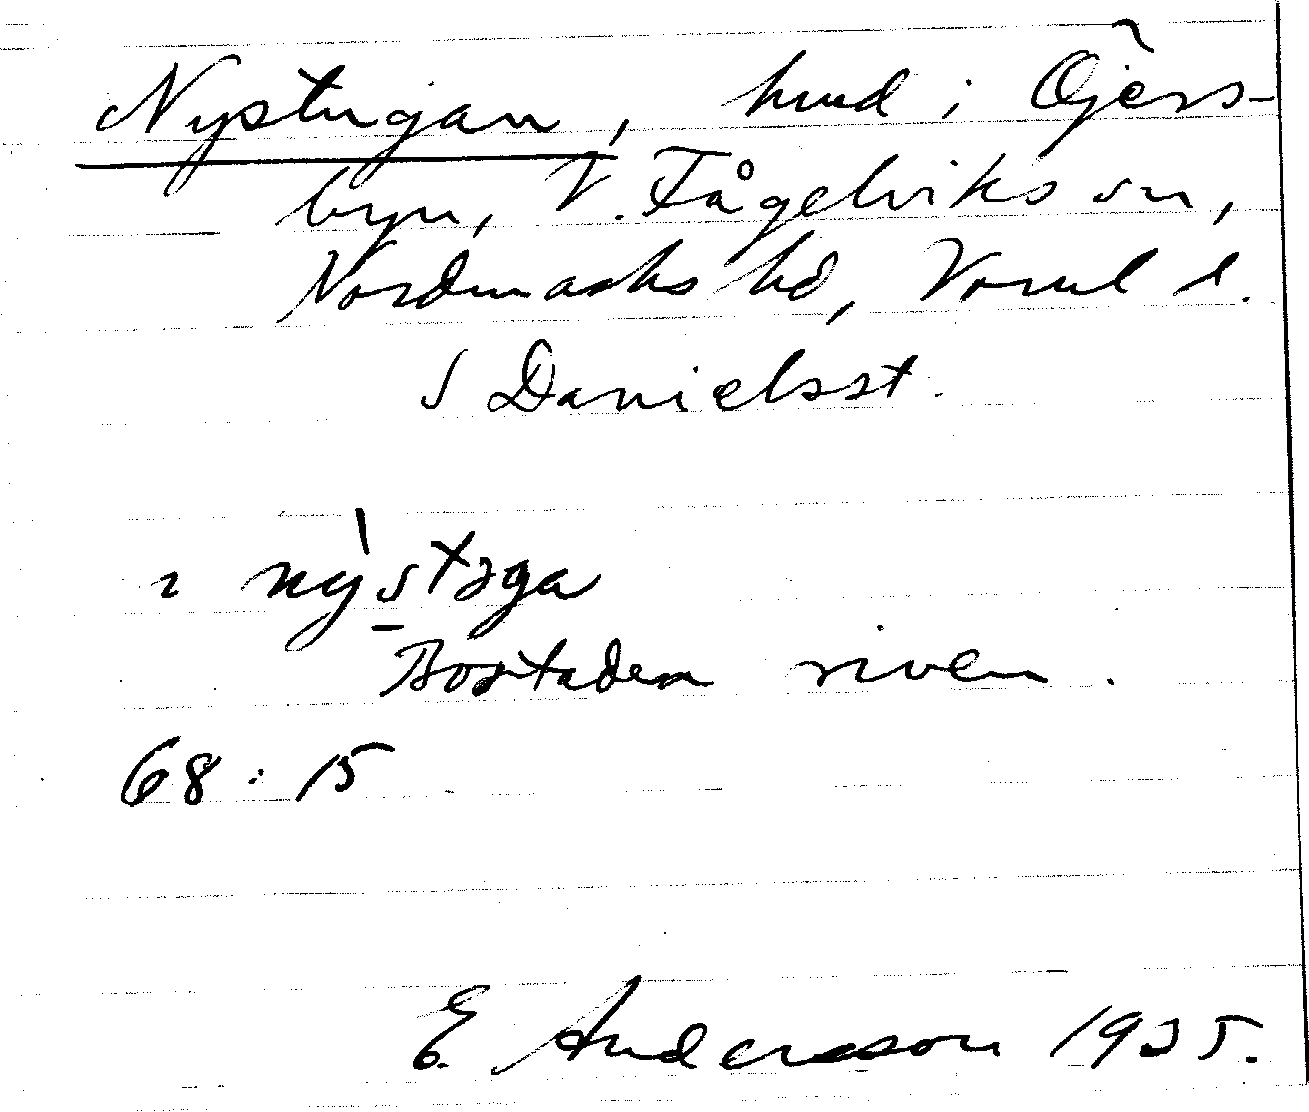 Nystugan, hmd i Öjers-
byn, V. Fågelviks sn,
Nordmarks hd, Vrml l.
S Danielsst.
nýstɜga
Bostaden riven.
68:15
E. Andersson 1925.